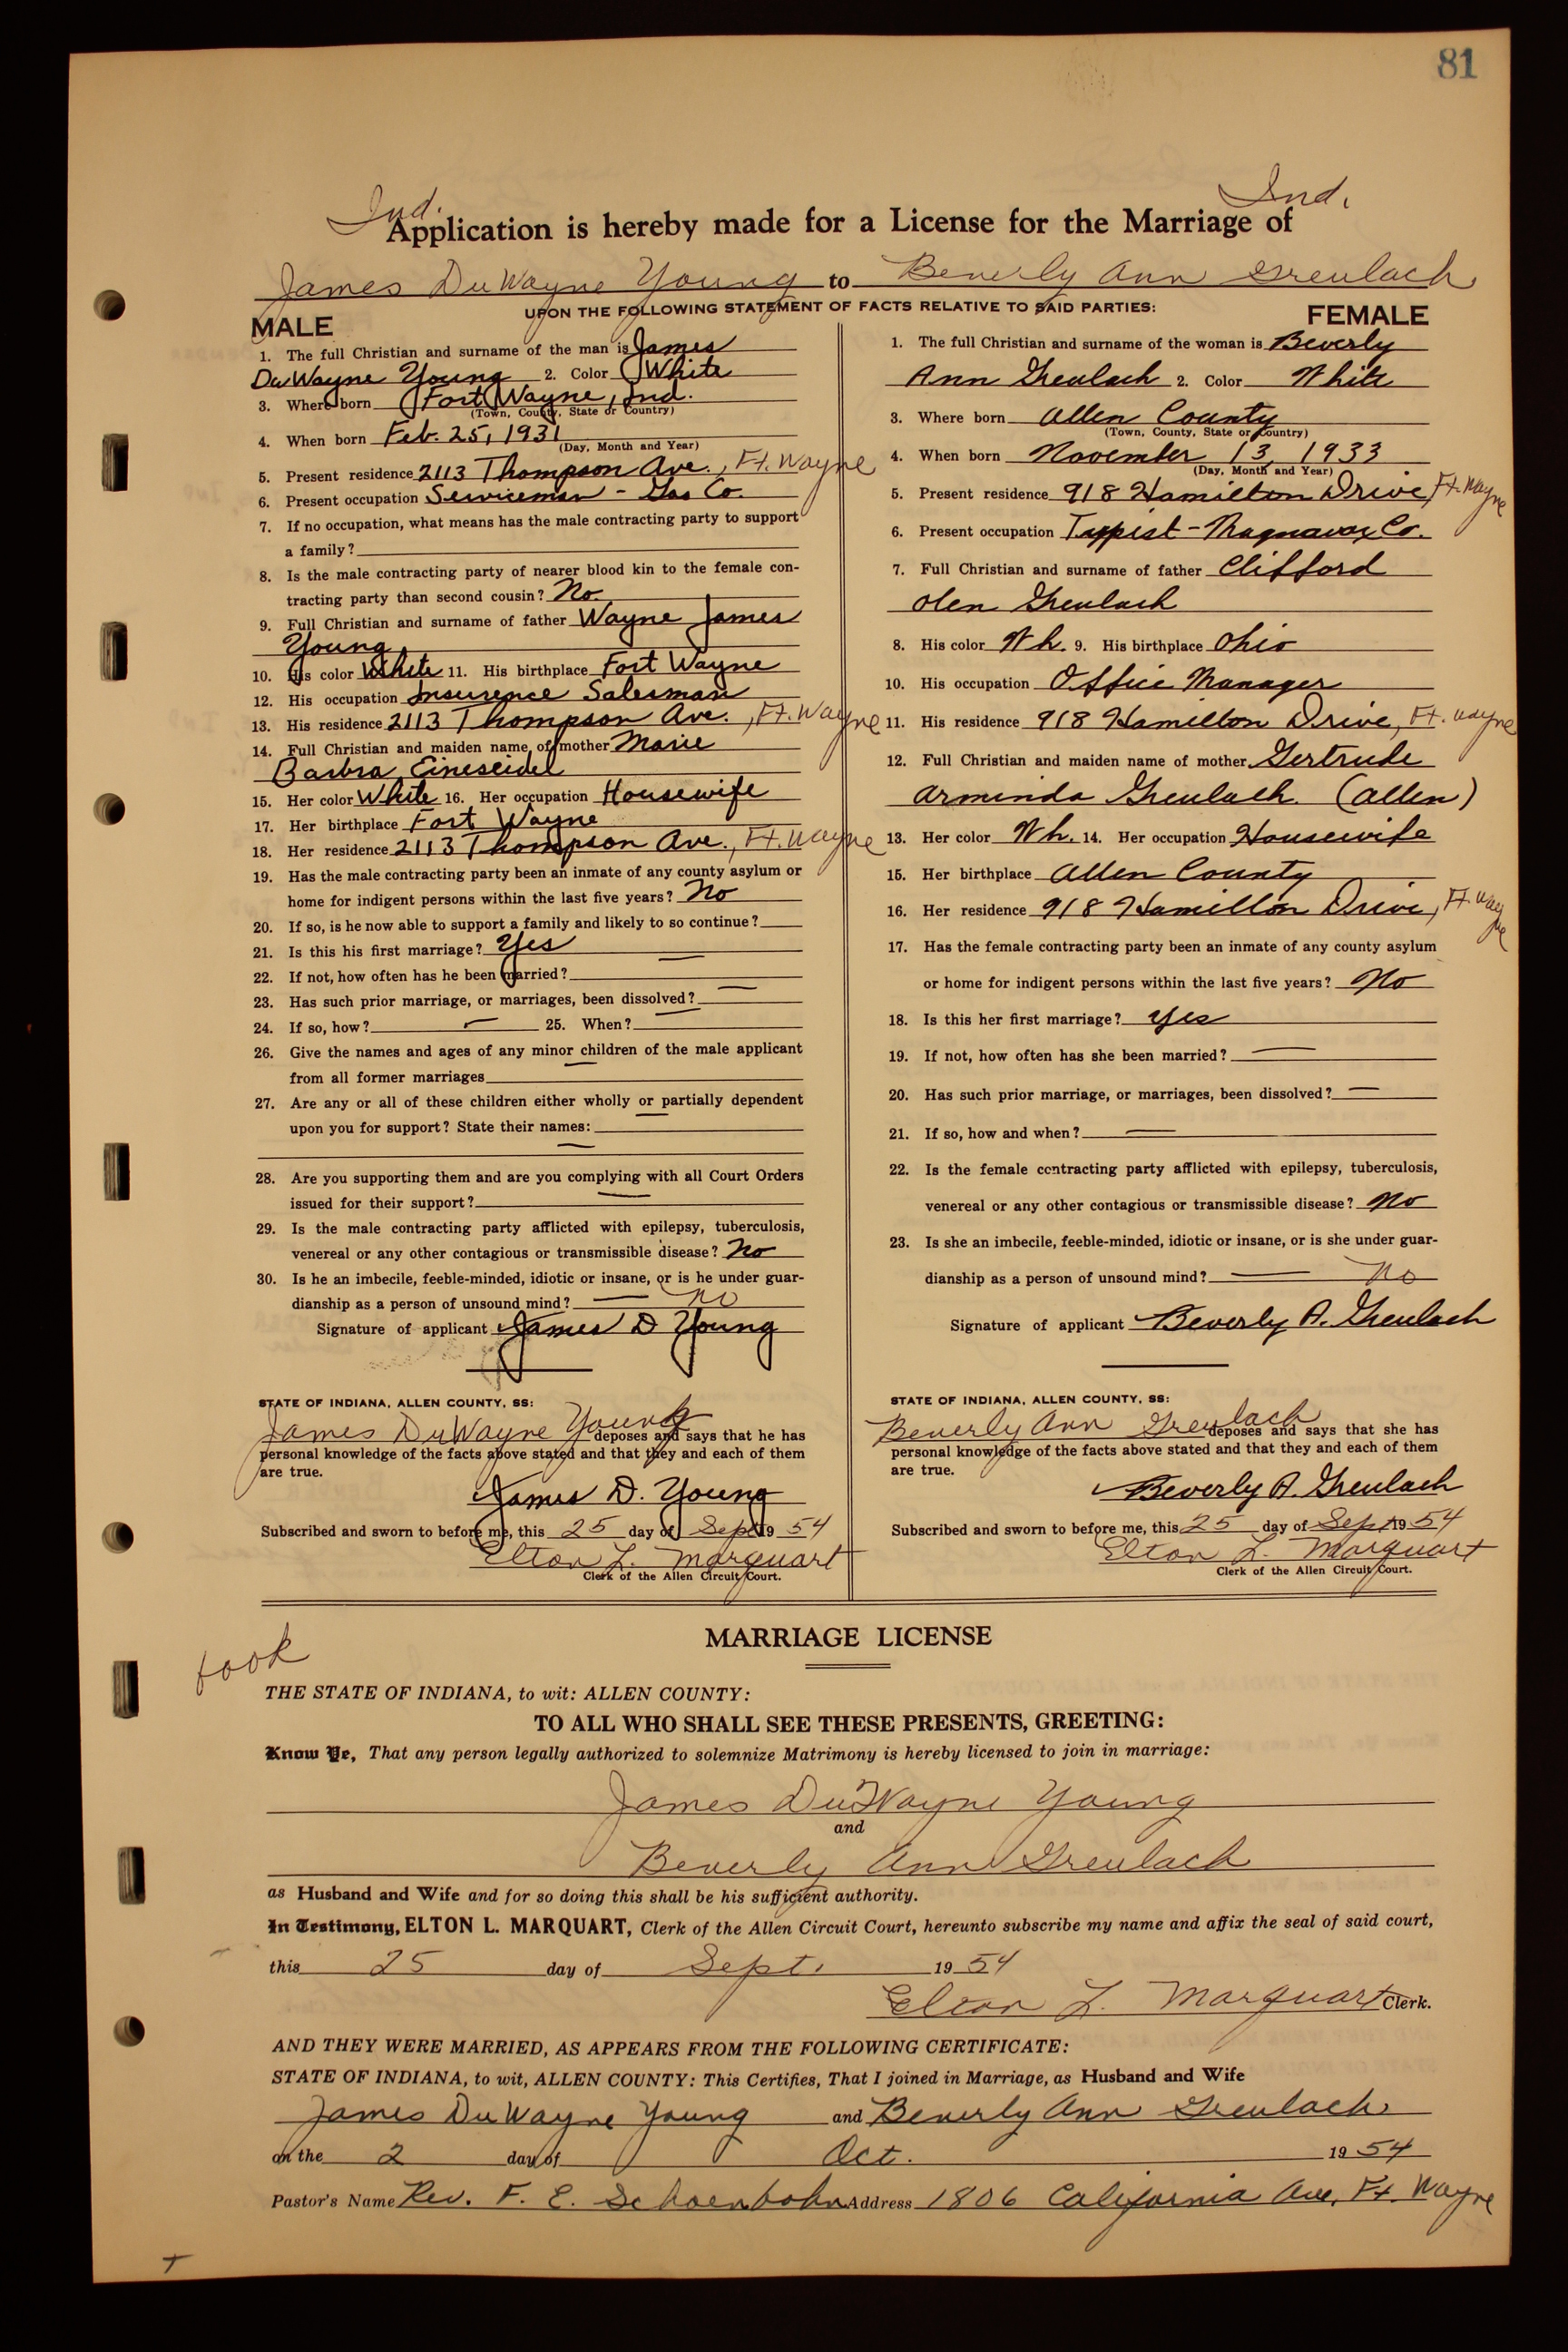 81
Ind. Ind.
Application is hereby made for a License for the Marriage of
James DuWayne Young to Beverly Ann Greulach
UPON THE FOLLOWING STATEMENT OF FACTS RELATIVE TO SAID PARTIES:
MALE
1. The full Christian and surname of the man is James
DuWayne Young 2. Color White
3. Where born Fort Wayne, Ind.
(Town, County, State or Country)
4. When born Feb. 25, 1931
(Day, Month and Year)
5. Present residence 2113 Thompson Ave., Ft. Wayne
6. Present occupation Serviceman - Gas Co.
7. If no occupation, what means has the male contracting party to support
a family?
8. Is the male contracting party of nearer blood kin to the female con-
tracting party than second cousin? No.
9. Full Christian and surname of father Wayne James
Young
10. His color White 11. His birthplace Fort Wayne
12. His occupation Insurence Salesman
13. His residence 2113 Thompson Ave., Ft. Wayne
14. Full Christian and maiden name of mother Marie
Barbra Eineseidel
15. Her color White 16. Her occupation Housewife
17. Her birthplace Fort Wayne
18. Her residence 2113 Thompson Ave., Ft. Wayne
19. Has the male contracting party been an inmate of any county asylum or
home for indigent persons within the last five years? No
20. If so, is he now able to support a family and likely to so continue?
21. Is this his first marriage? Yes
22. If not, how often has he been married? —
23. Has such prior marriage, or marriages, been dissolved? —
24. If so, how? — 25. When? —
26. Give the names and ages of any minor children of the male applicant
from all former marriages —
27. Are any or all of these children either wholly or partially dependent
upon you for support? State their names: —
—
28. Are you supporting them and are you complying with all Court Orders
issued for their support? —
29. Is the male contracting party afflicted with epilepsy, tuberculosis,
venereal or any other contagious or transmissible disease? No
30. Is he an imbecile, feeble-minded, idiotic or insane, or is he under guar-
dianship as a person of unsound mind? — no
Signature of applicant James D Young
STATE OF INDIANA, ALLEN COUNTY, SS:
James DuWayne Young deposes and says that he has
personal knowledge of the facts above stated and that they and each of them
are true.
James D. Young
Subscribed and sworn to before me, this 25 day of Sept 19 54
Elton L. Marquart
Clerk of the Allen Circuit Court.
FEMALE
1. The full Christian and surname of the woman is Beverly
Ann Greulach 2. Color White
3. Where born Allen County
(Town, County, State or Country)
4. When born November 13, 1933
(Day, Month and Year)
5. Present residence 918 Hamilton Drive, Ft. Wayne
6. Present occupation Typist - Magnavox Co.
7. Full Christian and surname of father Clifford
Olen Greulach
8. His color Wh. 9. His birthplace Ohio
10. His occupation Office Manager
11. His residence 918 Hamilton Drive, Ft. Wayne
12. Full Christian and maiden name of mother Gertrude
Arminda Greulach. (Allen)
13. Her color Wh. 14. Her occupation Housewife
15. Her birthplace Allen County
16. Her residence 918 Hamilton Drive, Ft. Wayne
17. Has the female contracting party been an inmate of any county asylum
or home for indigent persons within the last five years? No
18. Is this her first marriage? Yes
19. If not, how often has she been married? —
20. Has such prior marriage, or marriages, been dissolved? —
21. If so, how and when? —
22. Is the female contracting party afflicted with epilepsy, tuberculosis,
venereal or any other contagious or transmissible disease? No
23. Is she an imbecile, feeble-minded, idiotic or insane, or is she under guar-
dianship as a person of unsound mind? — no
Signature of applicant Beverly A. Greulach
STATE OF INDIANA, ALLEN COUNTY, SS:
Beverly Ann Greulach deposes and says that she has
personal knowledge of the facts above stated and that they and each of them
are true.
Beverly A. Greulach
Subscribed and sworn to before me, this 25 day of Sept 19 54
Elton L. Marquart
Clerk of the Allen Circuit Court.
MARRIAGE LICENSE
took
THE STATE OF INDIANA, to wit: ALLEN COUNTY:
TO ALL WHO SHALL SEE THESE PRESENTS, GREETING:
Know Ye, That any person legally authorized to solemnize Matrimony is hereby licensed to join in marriage:
James DuWayne Young
and
Beverly Ann Greulach
as Husband and Wife and for so doing this shall be his sufficient authority.
In Testimony, ELTON L. MARQUART, Clerk of the Allen Circuit Court, hereunto subscribe my name and affix the seal of said court,
this 25 day of Sept. 19 54
Elton L. Marquart Clerk.
AND THEY WERE MARRIED, AS APPEARS FROM THE FOLLOWING CERTIFICATE:
STATE OF INDIANA, to wit, ALLEN COUNTY: This Certifies, That I joined in Marriage, as Husband and Wife
James DuWayne Young and Beverly Ann Greulach
on the 2 day of Oct. 19 54
Pastor's Name Rev. F. E. Schoenbohn Address 1806 California Ave, Ft. Wayne